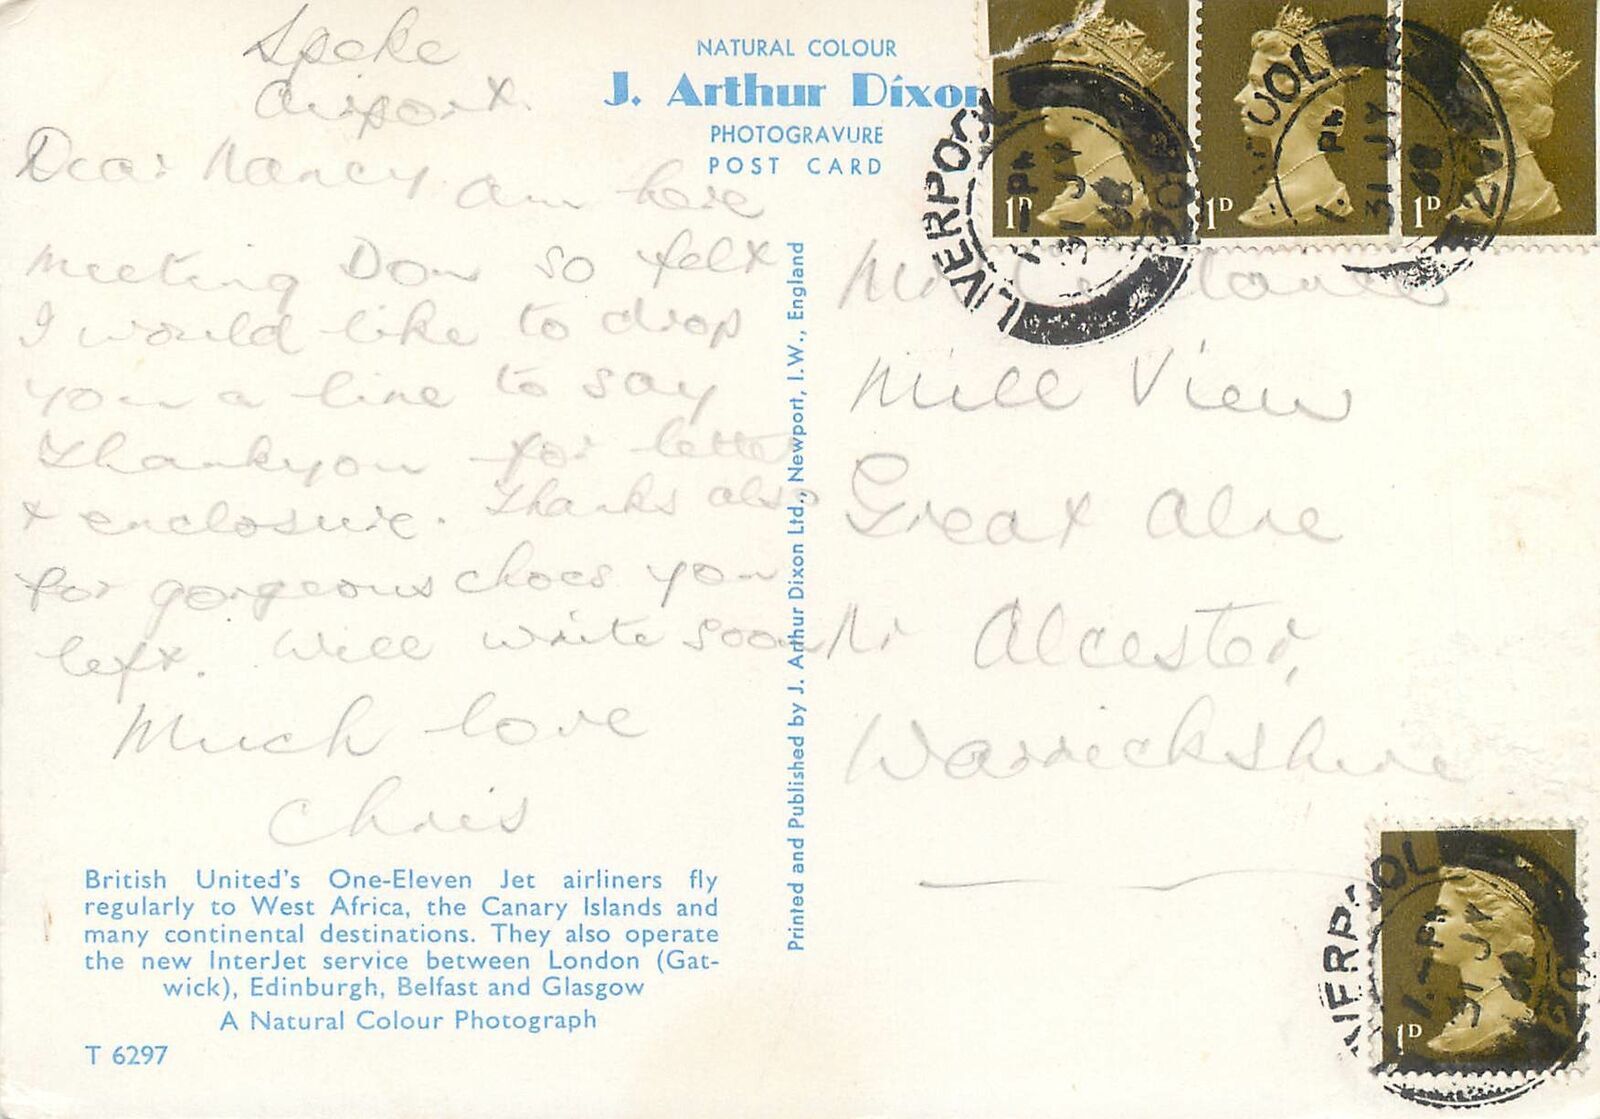 Speke
Airport.
Dear Nancy. Am here
meeting Don so felt
I would like to drop
you a line to say
Thankyou for letter
& enclosure. Thanks also
for gorgeous chocs you
left. Will write soon
Much love
Chris
British United's One-Eleven Jet airliners fly
regularly to West Africa, the Canary Islands and
many continental destinations. They also operate
the new InterJet service between London (Gat-
wick), Edinburgh, Belfast and Glasgow
A Natural Colour Photograph
T 6297
NATURAL COLOUR
J. Arthur Dixon
PHOTOGRAVURE
POST CARD
Printed and Published by J. Arthur Dixon Ltd., Newport, I.W., England
1D
1D
1D
LIVERPOOL
31 JY
Mill View
Great Alne
Nr Alcester,
Warwickshire
1D